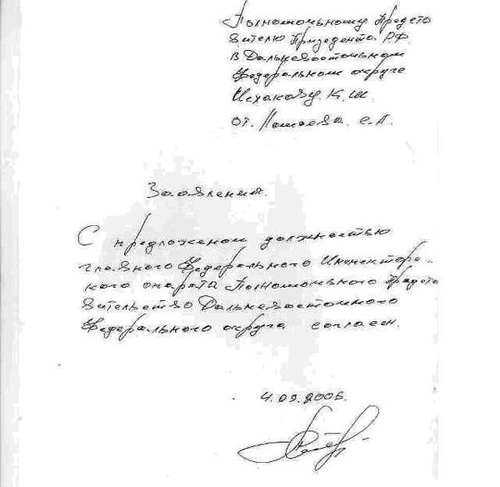 Полномочному Предста
вителю Президента РФ
в Дальневосточном
Федеральном округе
Исхакову К.Ш.
от
Заявления.
С предложеном должностью
главного Федерального Инспекторс-
кого опарата Полномочного Предста
вительство Дальневосточного
Федерального округа согласен.
4.09.2006.